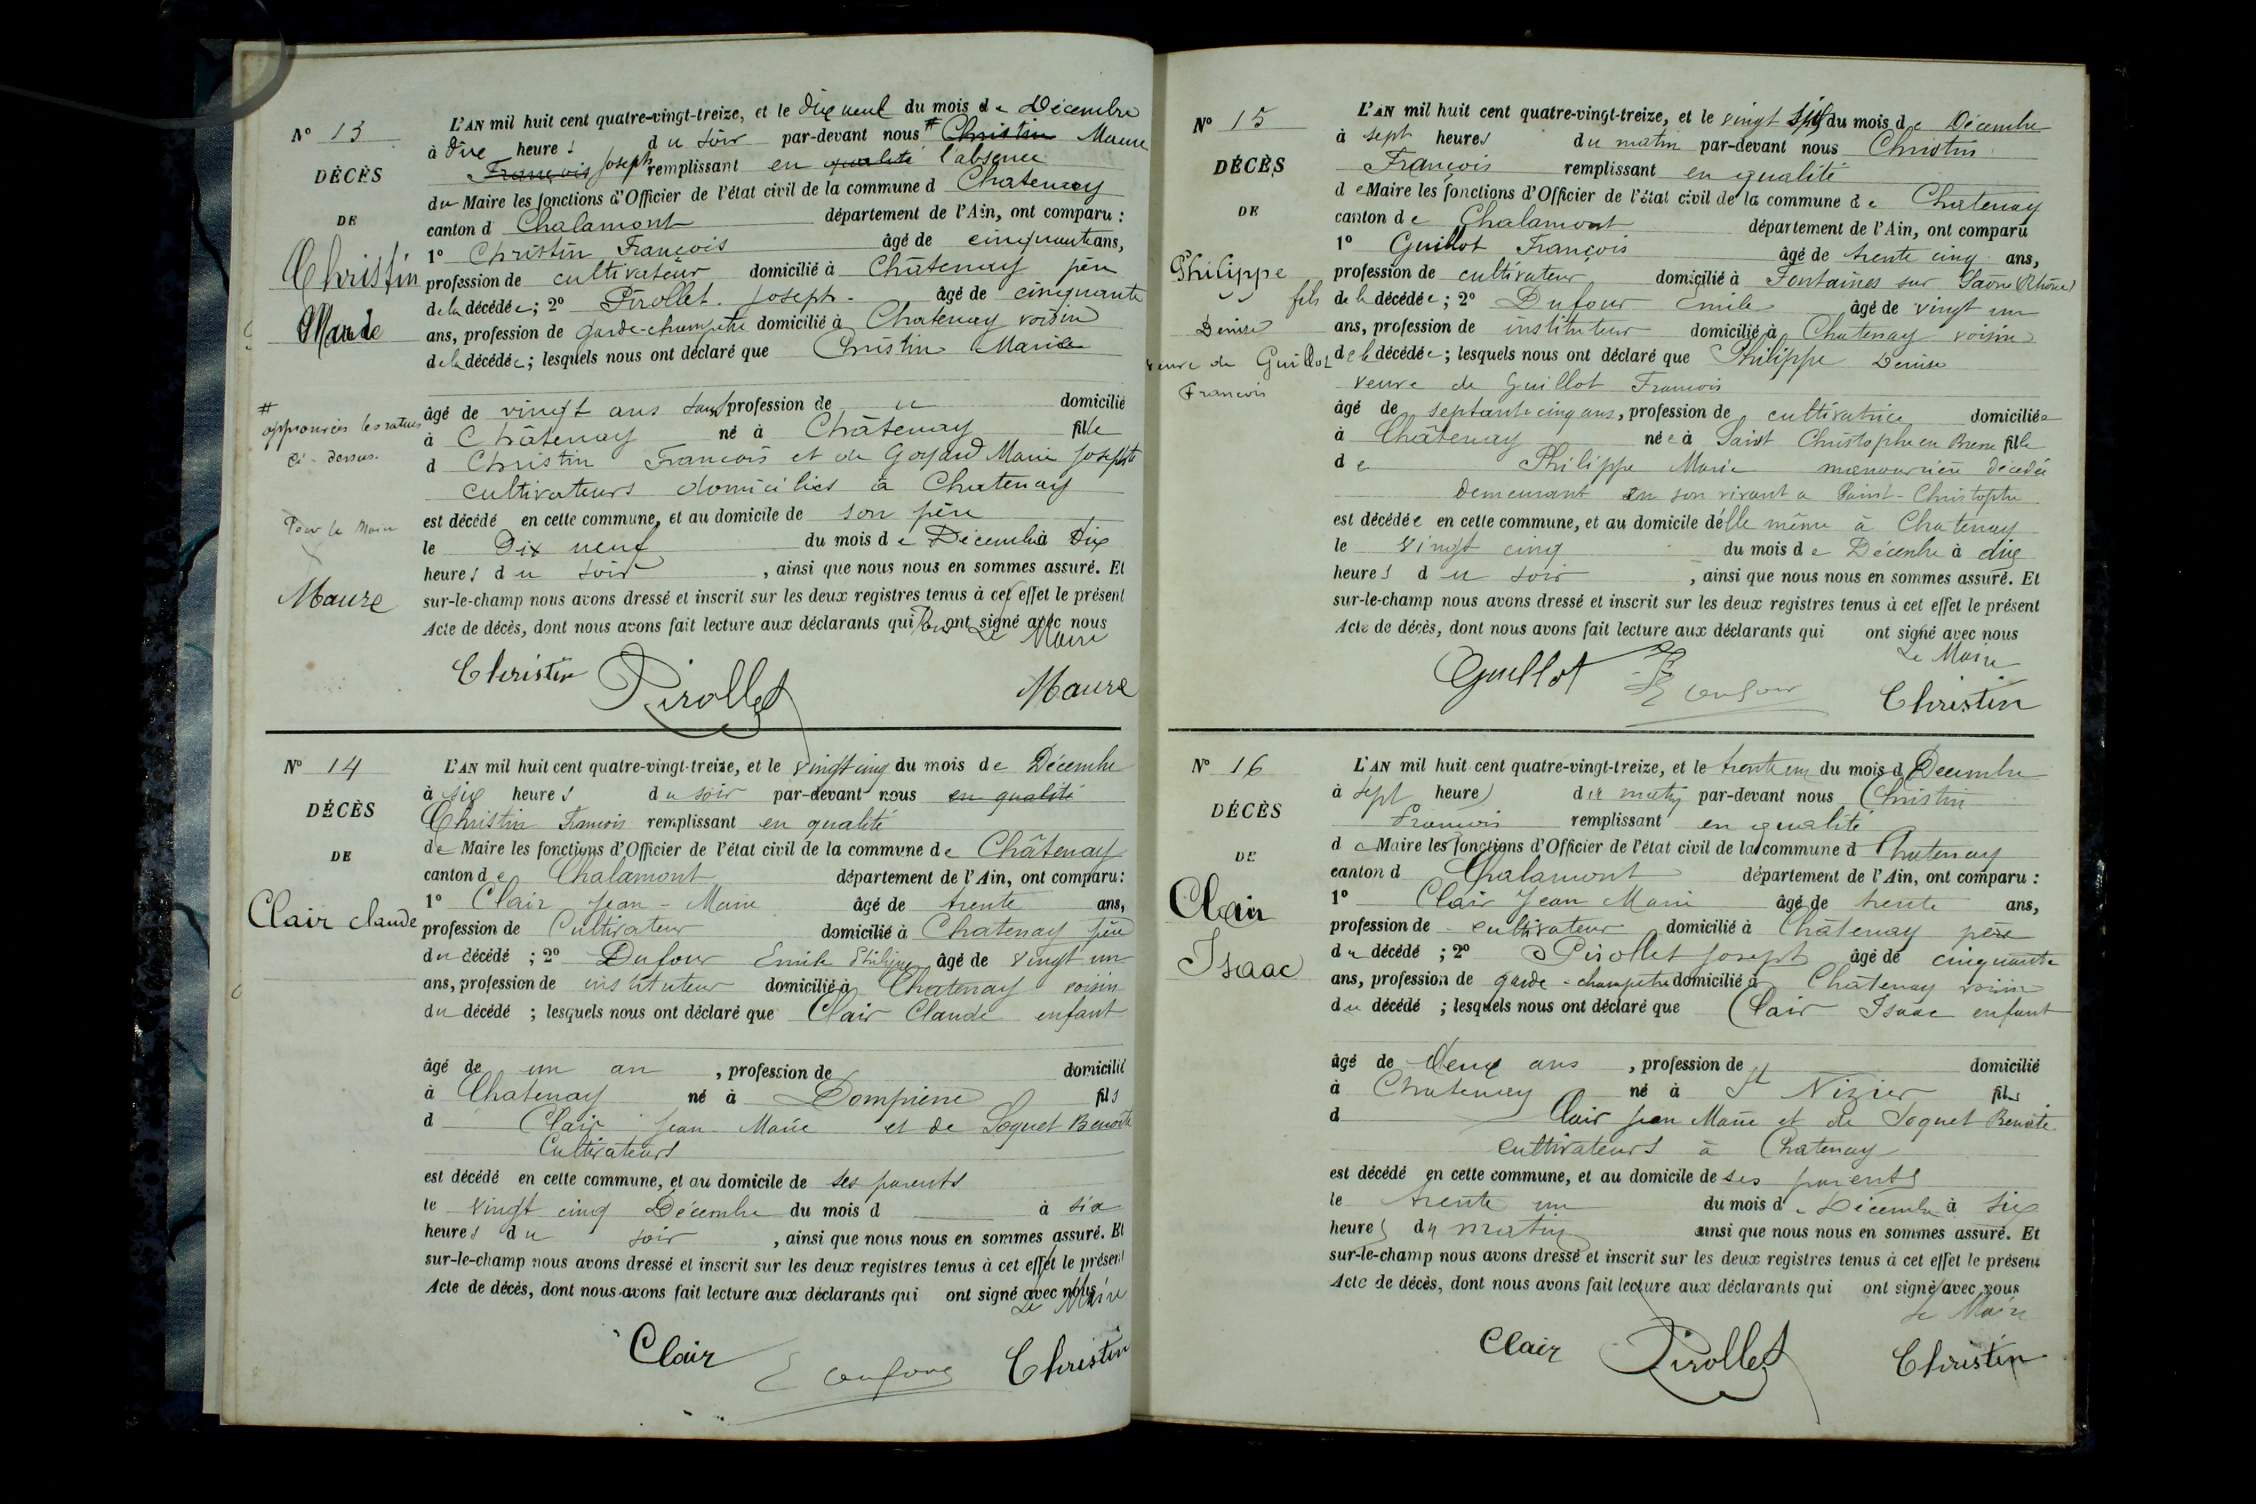 N° 13
DÉCÈS
DE
Christin
Marie
# approuvées les ratures
ci-dessus.
Pour le Maire
Maure
L'AN mil huit cent quatre-vingt-treize, et le dix neuf du mois de Décembre
à dix heures du soir par-devant nous # Christin Maure
François Joseph remplissant en qualité l'absence
du Maire les fonctions d'Officier de l'état civil de la commune d Chatenay
canton d Chalamont département de l'Ain, ont comparu :
1° Christin François âgé de cinquante ans,
profession de cultivateur domicilié à Châtenay père
de la décédée ; 2° Pirollet Joseph âgé de cinquante
ans, profession de garde-champêtre domicilié à Chatenay voisin
de la décédée ; lesquels nous ont déclaré que Christin Marie
âgé de vingt ans sans profession de domicilié
à Châtenay né à Châtenay fille
d Christin François et de Goyard Marie Josephte
cultivateurs domiciliés à Chatenay
est décédé en cette commune, et au domicile de son père
le Dix neuf du mois de Décembre à Dix
heures du soir , ainsi que nous nous en sommes assuré. Et
sur-le-champ nous avons dressé et inscrit sur les deux registres tenus à cet effet le présent
Acte de décès, dont nous avons fait lecture aux déclarants qui ont signé avec nous
Pour Le Maire
Christin Pirollet Maure
N° 14
DÉCÈS
DE
Clair claude
L'AN mil huit cent quatre-vingt-treize, et le vingt cinq du mois de Décembre
à six heures du soir par-devant nous en qualité
Christin François remplissant en qualité
de Maire les fonctions d'Officier de l'état civil de la commune de Châtenay
canton de Chalamont département de l'Ain, ont comparu :
1° Clair Jean-Marie âgé de trente ans,
profession de Cultivateur domicilié à Chatenay père
du décédé ; 2° Dufour Emile Philippe âgé de vingt un
ans, profession de instituteur domicilié à Chatenay voisin
du décédé ; lesquels nous ont déclaré que Clair Claude enfant
âgé de un an , profession de domicilié
à Chatenay né à Dompierre fils
d Clair Jean Marie et de Soquet Benoite
Cultivateurs
est décédé en cette commune, et au domicile de ses parents
le vingt cinq Décembre du mois d à six
heures du soir , ainsi que nous nous en sommes assuré. Et
sur-le-champ nous avons dressé et inscrit sur les deux registres tenus à cet effet le présent
Acte de décès, dont nous avons fait lecture aux déclarants qui ont signé avec nous
Le Maire
Clair E Dufour Christin
N° 15
DÉCÈS
DE
Philippe
fils
Denise
veuve de Guillot
François
L'AN mil huit cent quatre-vingt-treize, et le vingt six du mois de Décembre
à sept heures du matin par-devant nous Christin
François remplissant en qualité
de Maire les fonctions d'Officier de l'état civil de la commune de Chatenay
canton de Chalamont département de l'Ain, ont comparu
1° Guillot François âgé de trente cinq ans,
profession de cultivateur domicilié à Fontaines sur Saône (Rhône)
de la décédée ; 2° Dufour Emile âgé de vingt un
ans, profession de instituteur domicilié à Chatenay voisin
de la décédée ; lesquels nous ont déclaré que Philippe Denise
veuve de Guillot François
âgé de septante cinq ans, profession de cultivatrice domiciliée
à Châtenay née à Saint Christophe en Bresse fille
de Philippe Marie manouvrière décédée
demeurant en son vivant a Saint-Christophe
est décédée en cette commune, et au domicile d'elle même à Chatenay
le vingt cinq du mois de Décembre à dix
heures du soir , ainsi que nous nous en sommes assuré. Et
sur-le-champ nous avons dressé et inscrit sur les deux registres tenus à cet effet le présent
Acte de décès, dont nous avons fait lecture aux déclarants qui ont signé avec nous
Le Maire
Guillot E Dufour Christin
N° 16
DÉCÈS
DE
Clair
Isaac
L'AN mil huit cent quatre-vingt-treize, et le trente un du mois d Decembre
à sept heures du matin par-devant nous Christin
François remplissant en qualité
de Maire les fonctions d'Officier de l'état civil de la commune d Chatenay
canton d Chalamont département de l'Ain, ont comparu :
1° Clair Jean Marie âgé de trente ans,
profession de cultivateur domicilié à Châtenay père
du décédé ; 2° Pirollet Joseph âgé de cinquante
ans, profession de garde-champetre domicilié à Châtenay voisin
du décédé ; lesquels nous ont déclaré que Clair Isaac enfant
âgé de Deux ans , profession de domicilié
à Chatenay né à St Nizier fils
d Clair Jean Marie et de Soquet Benoite
cultivateurs à Chatenay
est décédé en cette commune, et au domicile de ses parents
le trente un du mois de Décembre à six
heures du matin ainsi que nous nous en sommes assuré. Et
sur-le-champ nous avons dressé et inscrit sur les deux registres tenus à cet effet le présent
Acte de décès, dont nous avons fait lecture aux déclarants qui ont signé avec nous
Le Maire
Clair Pirollet Christin